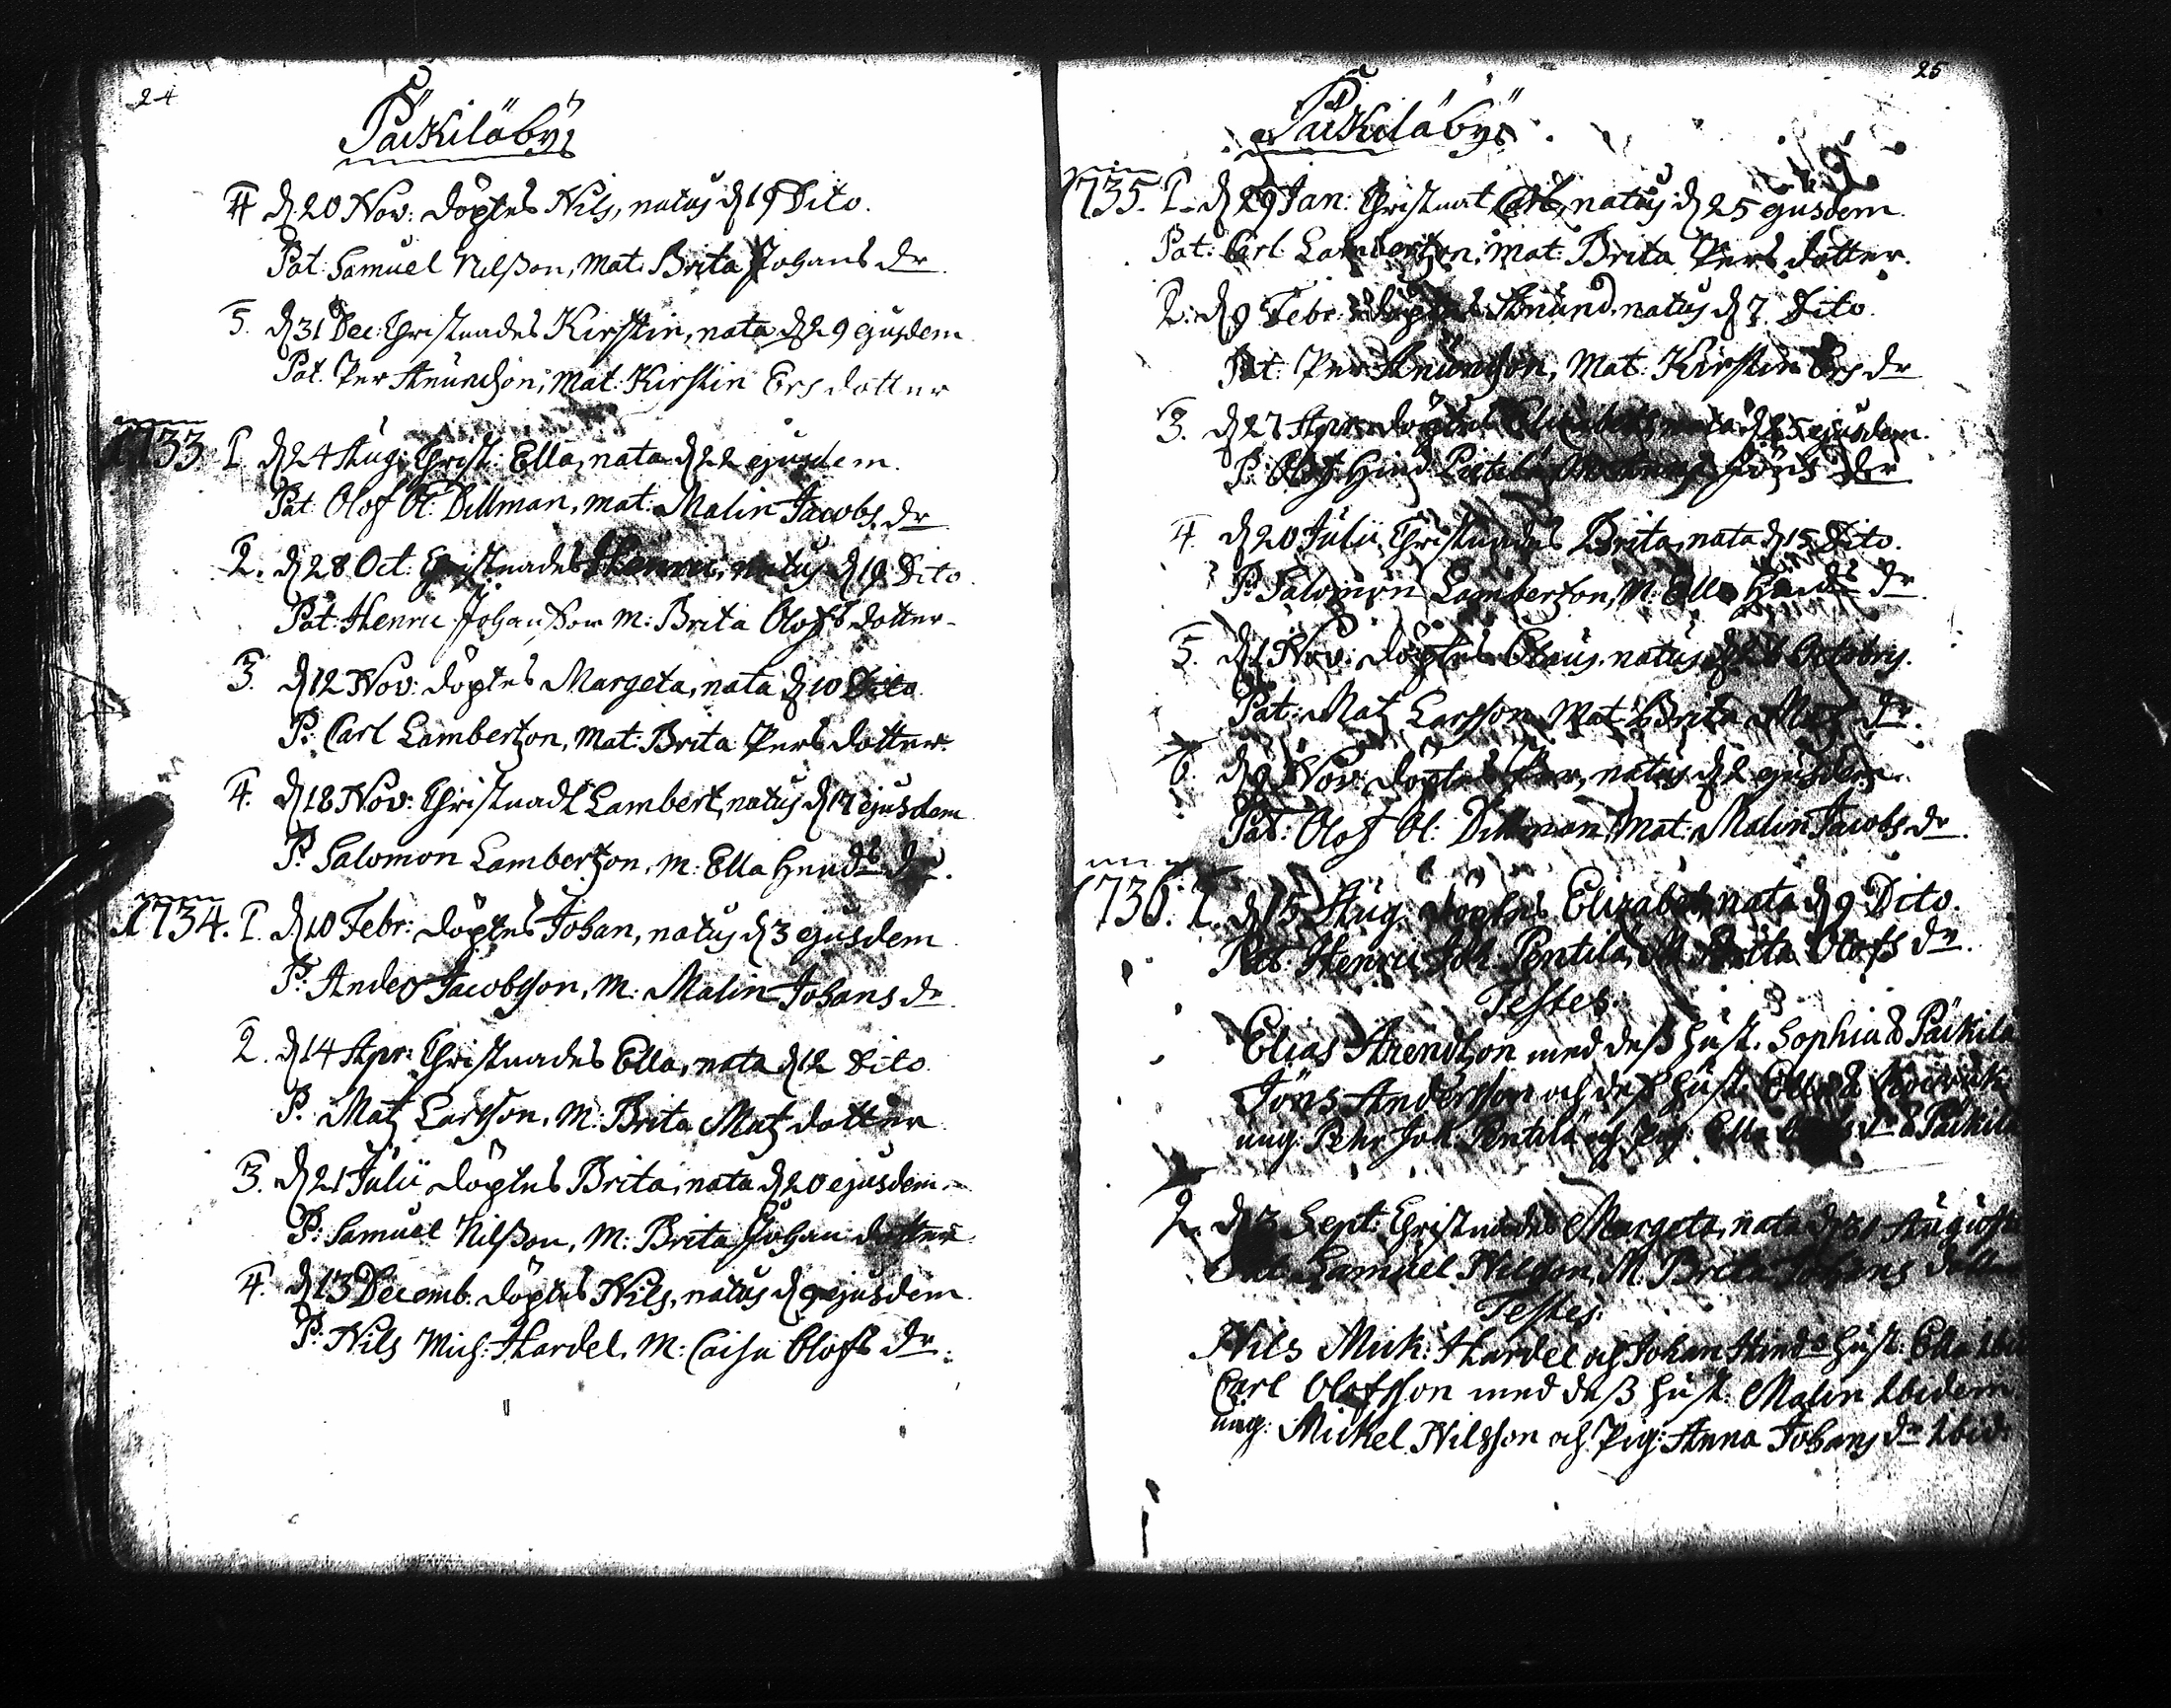 24
Päikiläby
4 d. 20 Nov: döptes Nils, natus d 19 Dito.
Pat: Samuel Nilßon, Mat: Brita Johans dr
5. d 31 Dec: Christnades Kirstin, nata d 29 ejusdem
Pat. Per Amundson, Mat: Kirstin Ers dotter
1733 1 d 24 Aug: Christ: Ella, nata d 22 ejusdem.
Pat Olof Ol: Dillman, mat: Malin Jacobs dr
2. d 28 Oct: Christnades Henric, natus d 19 Dito.
Pat: Henric Johansson M: Brita Olofs dotter
3. d 12 Nov: döptes Margeta, nata d 10 Dito
P: Carl Lambertzon, Mat: Brita Pers dotter.
4. d 18 Nov: Christnadt Lambert, natus d 17 ejusdem
P: Salomon Lambertzon, M: Ella Hindr dr.
1734. 1. d 10 Febr: döptes Johan, natus d 3 ejusdem
P: Anders Jacobsson, M: Malin Johans dr
2. d 14 Apr: Christnades Ella, nata d 12 Dito.
P. Matz Larsson, M: Brita Matz dotter
3. d 21 Julii döptes Brita, nata d 20 ejusdem.
P: Samuel Nilßon, M: Brita Johan dotter
4. d 13 Decemb. döptes Nils, natus d 9 ejusdem.
P: Nils Mich: Hardel, M: Caisa Olofs dr.
25
Päikiläby
1735. 1. d 29 Jan: Christnat Carl, natus d 25 ejusdem.
Pat: Carl Lambertzon, Mat: Brita Pers dotter.
2. d 9 Febr: döptes Amund, natus d 7. Dito.
Pat: Per Amundson, Mat: Kirstin Ers dr
3. d 27 Apr: döptes Elizabeth nata d 25 ejusdem.
P: Olof Hind: dr
4. d 20 Julii Christnades Brita, nata d 15 Dito.
P: Salomon Lambertzon, M: Ella Hindr dr
5. d 1 Nov: döptes Claus, natus Octobris.
Pat: Matz Larsson Mat: Brita Matz dr.
6. d 9 Nov: döptes Per, natus d 2 ejusdem.
Pat: Olof Ol: Dillman, Mat: Malin Jacobs dr.
1736. 1. d 15 Aug. döptes Elizabeth nata d 9 Dito.
Pat: Henric Joh. Pentilä, M. Brita Olofs dr.
Testes.
Elias Arendtzon med deß hust. Sophia Päikilä
Jöns Andersson och deß hust.
ung. Pehr Joh. Pentilä och Pig: Ella dr Päikilä
2. d 3 Sept: Christnades Margeta, nata d 31 Augusti
Pat: Samuel Nilsson, M. Brita Johans dotter
Testes.
Nils Mick: Hardel och Johan Hindrs hust: Ella ibid
Carl Olofsson med deß hust. Malin ibidem.
ung: Mickel Nilsson och Pig: Anna Johans dr ibid: